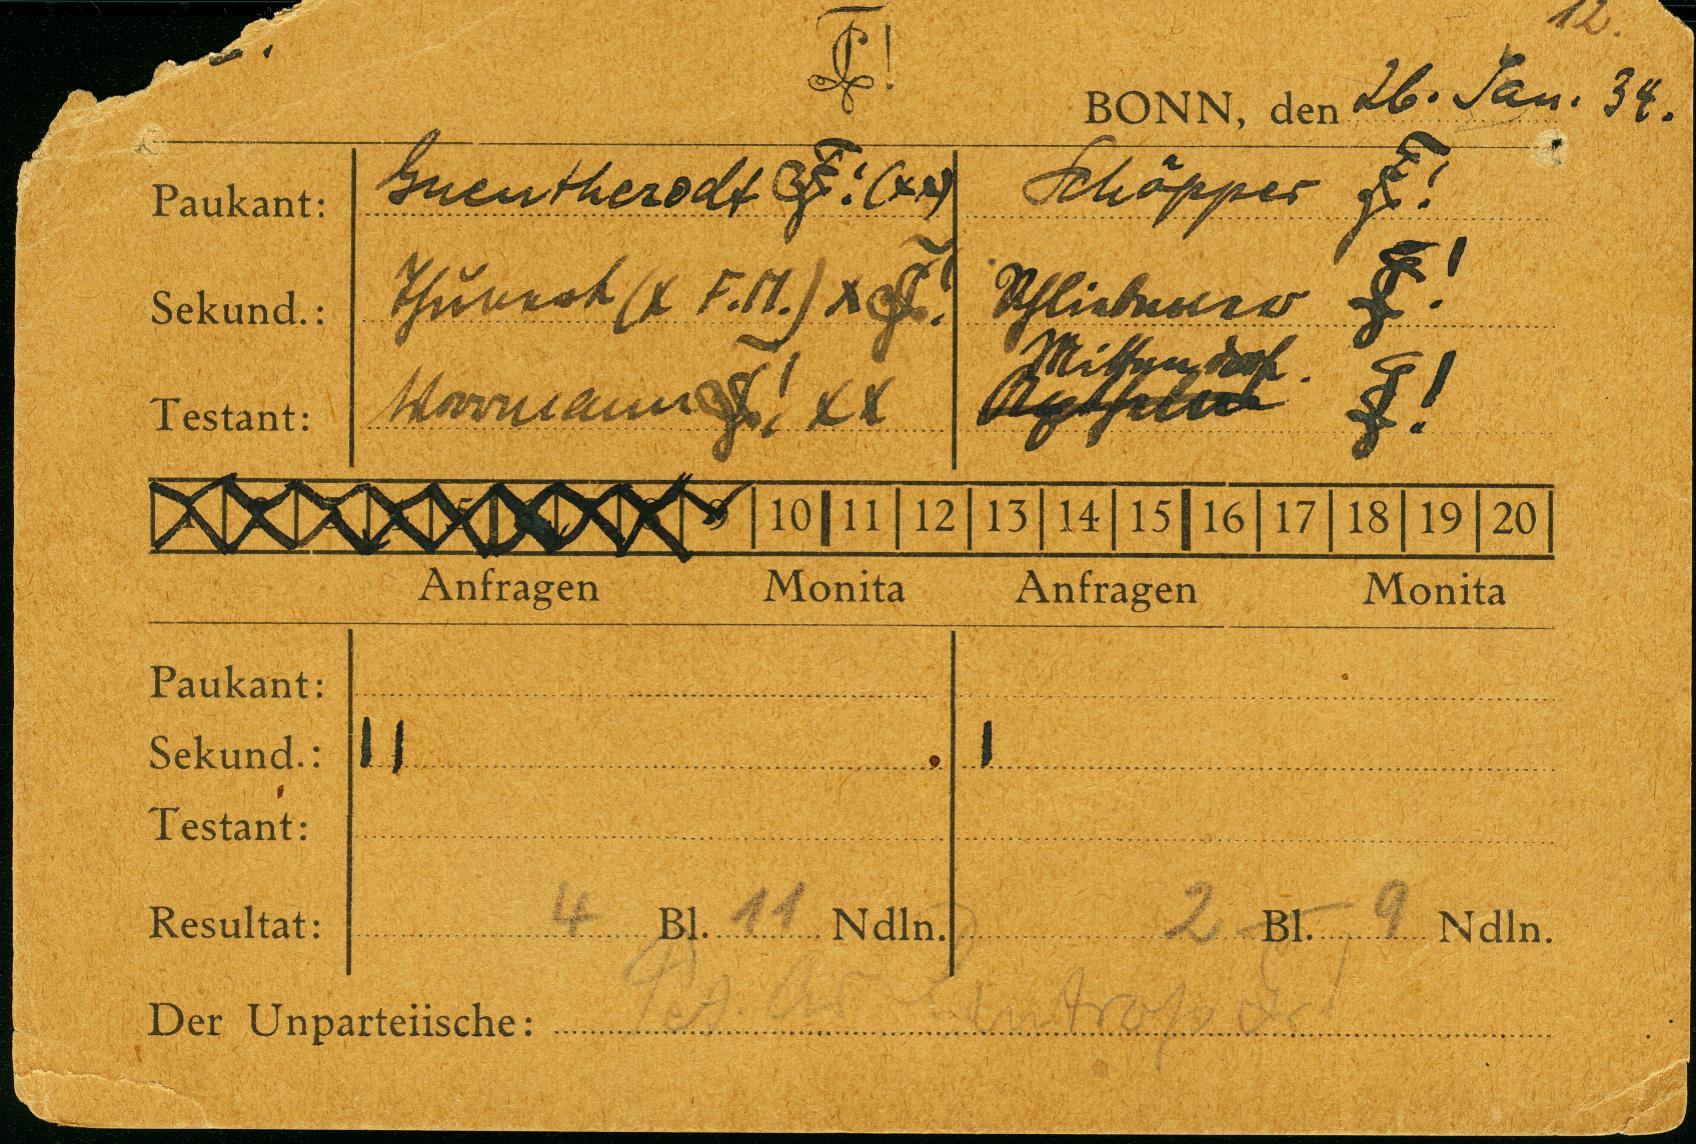 12.
BONN, den 26. Jan. 34.
Paukant: Guentherodt ! (xx) Schöpper !
Sekund.: (x F.M.) x ! !
Mittendorf.
Testant: ! xx !
1 2 3 4 5 6 7 8 9 10 11 12 13 14 15 16 17 18 19 20
Anfragen Monita Anfragen Monita
Paukant:
Sekund.: II I
Testant:
Resultat: 4 Bl. 11 Ndln. 2 Bl. 9 Ndln.
Der Unparteiische: